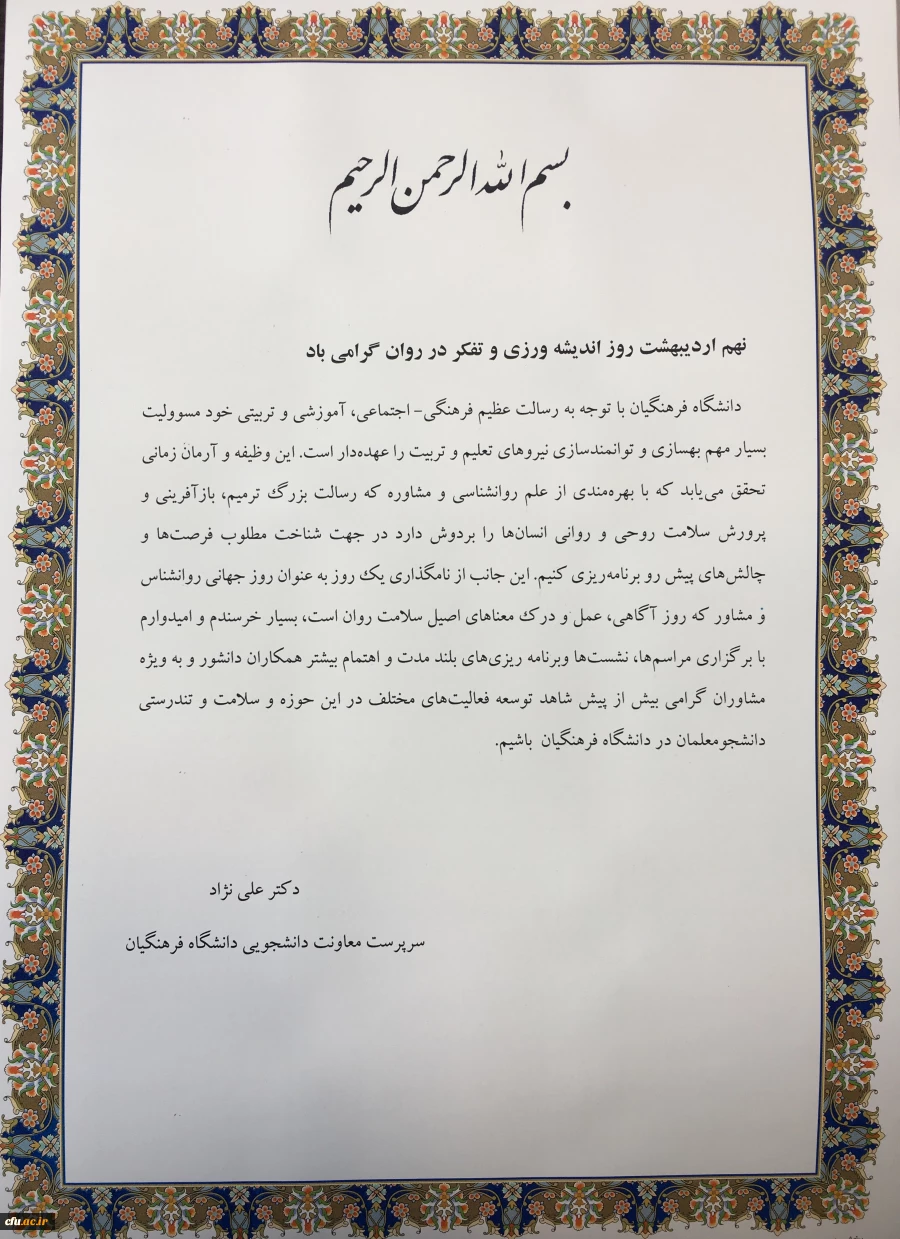 بسم الله الرحمن الرحیم
نهم اردیبهشت روز اندیشه ورزی و تفکر در روان گرامی باد
دانشگاه فرهنگیان با توجه به رسالت عظیم فرهنگی- اجتماعی، آموزشی و تربیتی خود مسوولیت
بسیار مهم بهسازی و توانمندسازی نیروهای تعلیم و تربیت را عهده‌دار است. این وظیفه و آرمان زمانی
تحقق می‌یابد که با بهره‌مندی از علم روانشناسی و مشاوره که رسالت بزرگ ترمیم، بازآفرینی و
پرورش سلامت روحی و روانی انسان‌ها را بردوش دارد در جهت شناخت مطلوب فرصت‌ها و
چالش‌های پیش رو برنامه‌ریزی کنیم. این جانب از نامگذاری یک روز به عنوان روز جهانی روانشناس
و مشاور که روز آگاهی، عمل و درک معناهای اصیل سلامت روان است، بسیار خرسندم و امیدوارم
با برگزاری مراسم‌ها، نشست‌ها وبرنامه ریزی‌های بلند مدت و اهتمام بیشتر همکاران دانشور و به ویژه
مشاوران گرامی بیش از پیش شاهد توسعه فعالیت‌های مختلف در این حوزه و سلامت و تندرستی
دانشجومعلمان در دانشگاه فرهنگیان باشیم.
دکتر علی نژاد
سرپرست معاونت دانشجویی دانشگاه فرهنگیان
cfu.ac.ir